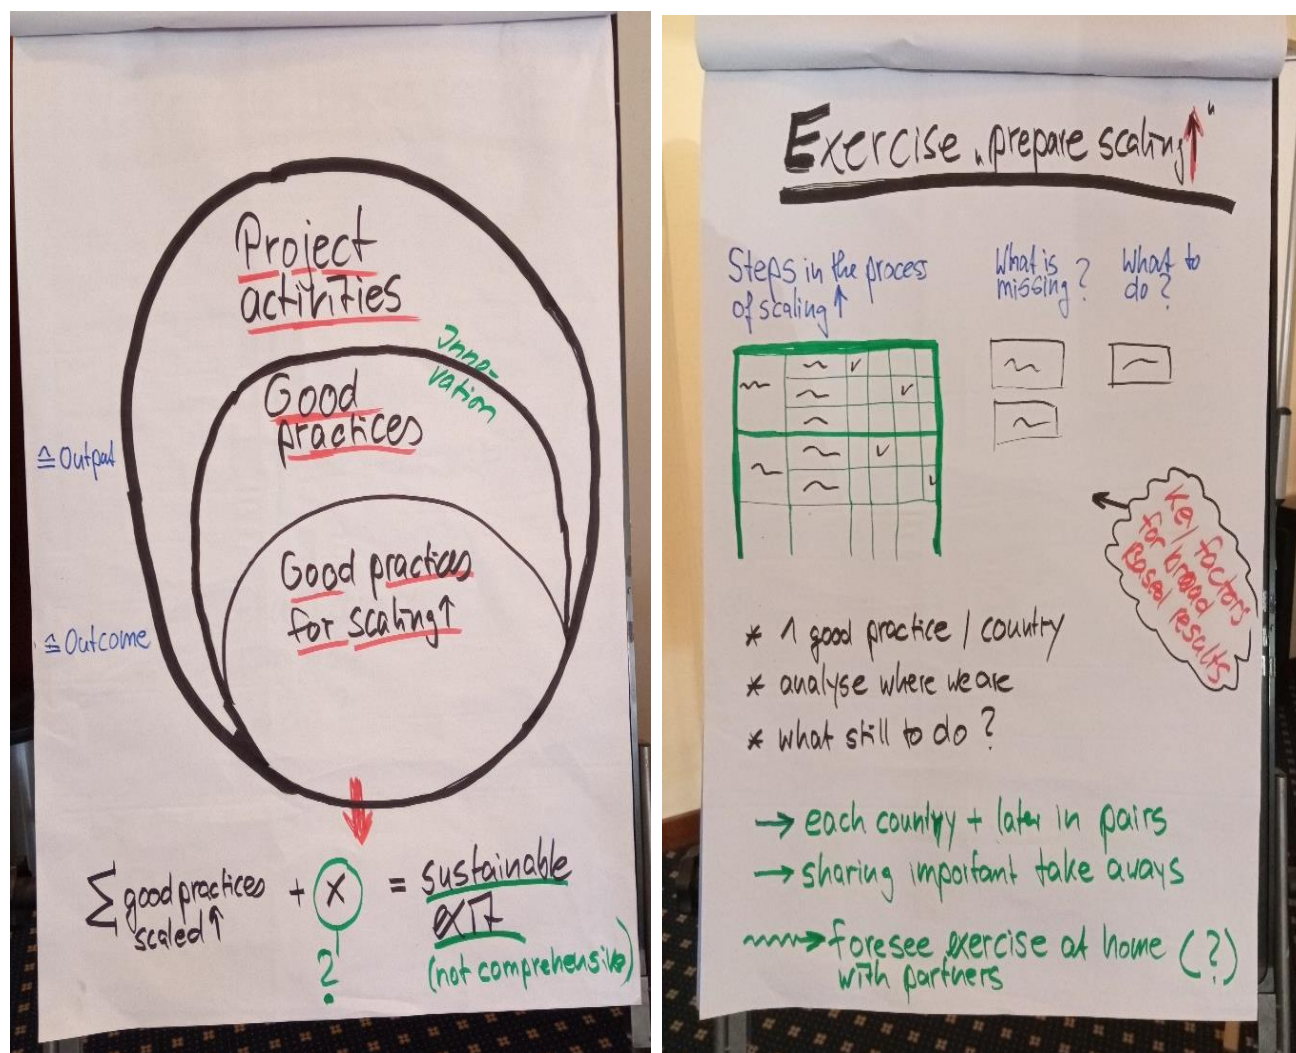 Project
activities
Inno-
vation
Good
practices
≙ Output
Good practices
for scaling↑
≙ Outcome
∑ good practices
scaled↑
+ X = sustainable
exit
?
(not comprehensive)
Exercise „prepare scaling↑"
Steps in the process
of scaling↑
What is
missing?
What to
do?
Key factors
for broad
based results
* 1 good practice / country
* analyse where we are
* what still to do?
→ each country + later in pairs
→ sharing important take aways
→ foresee exercise at home (?)
with partners